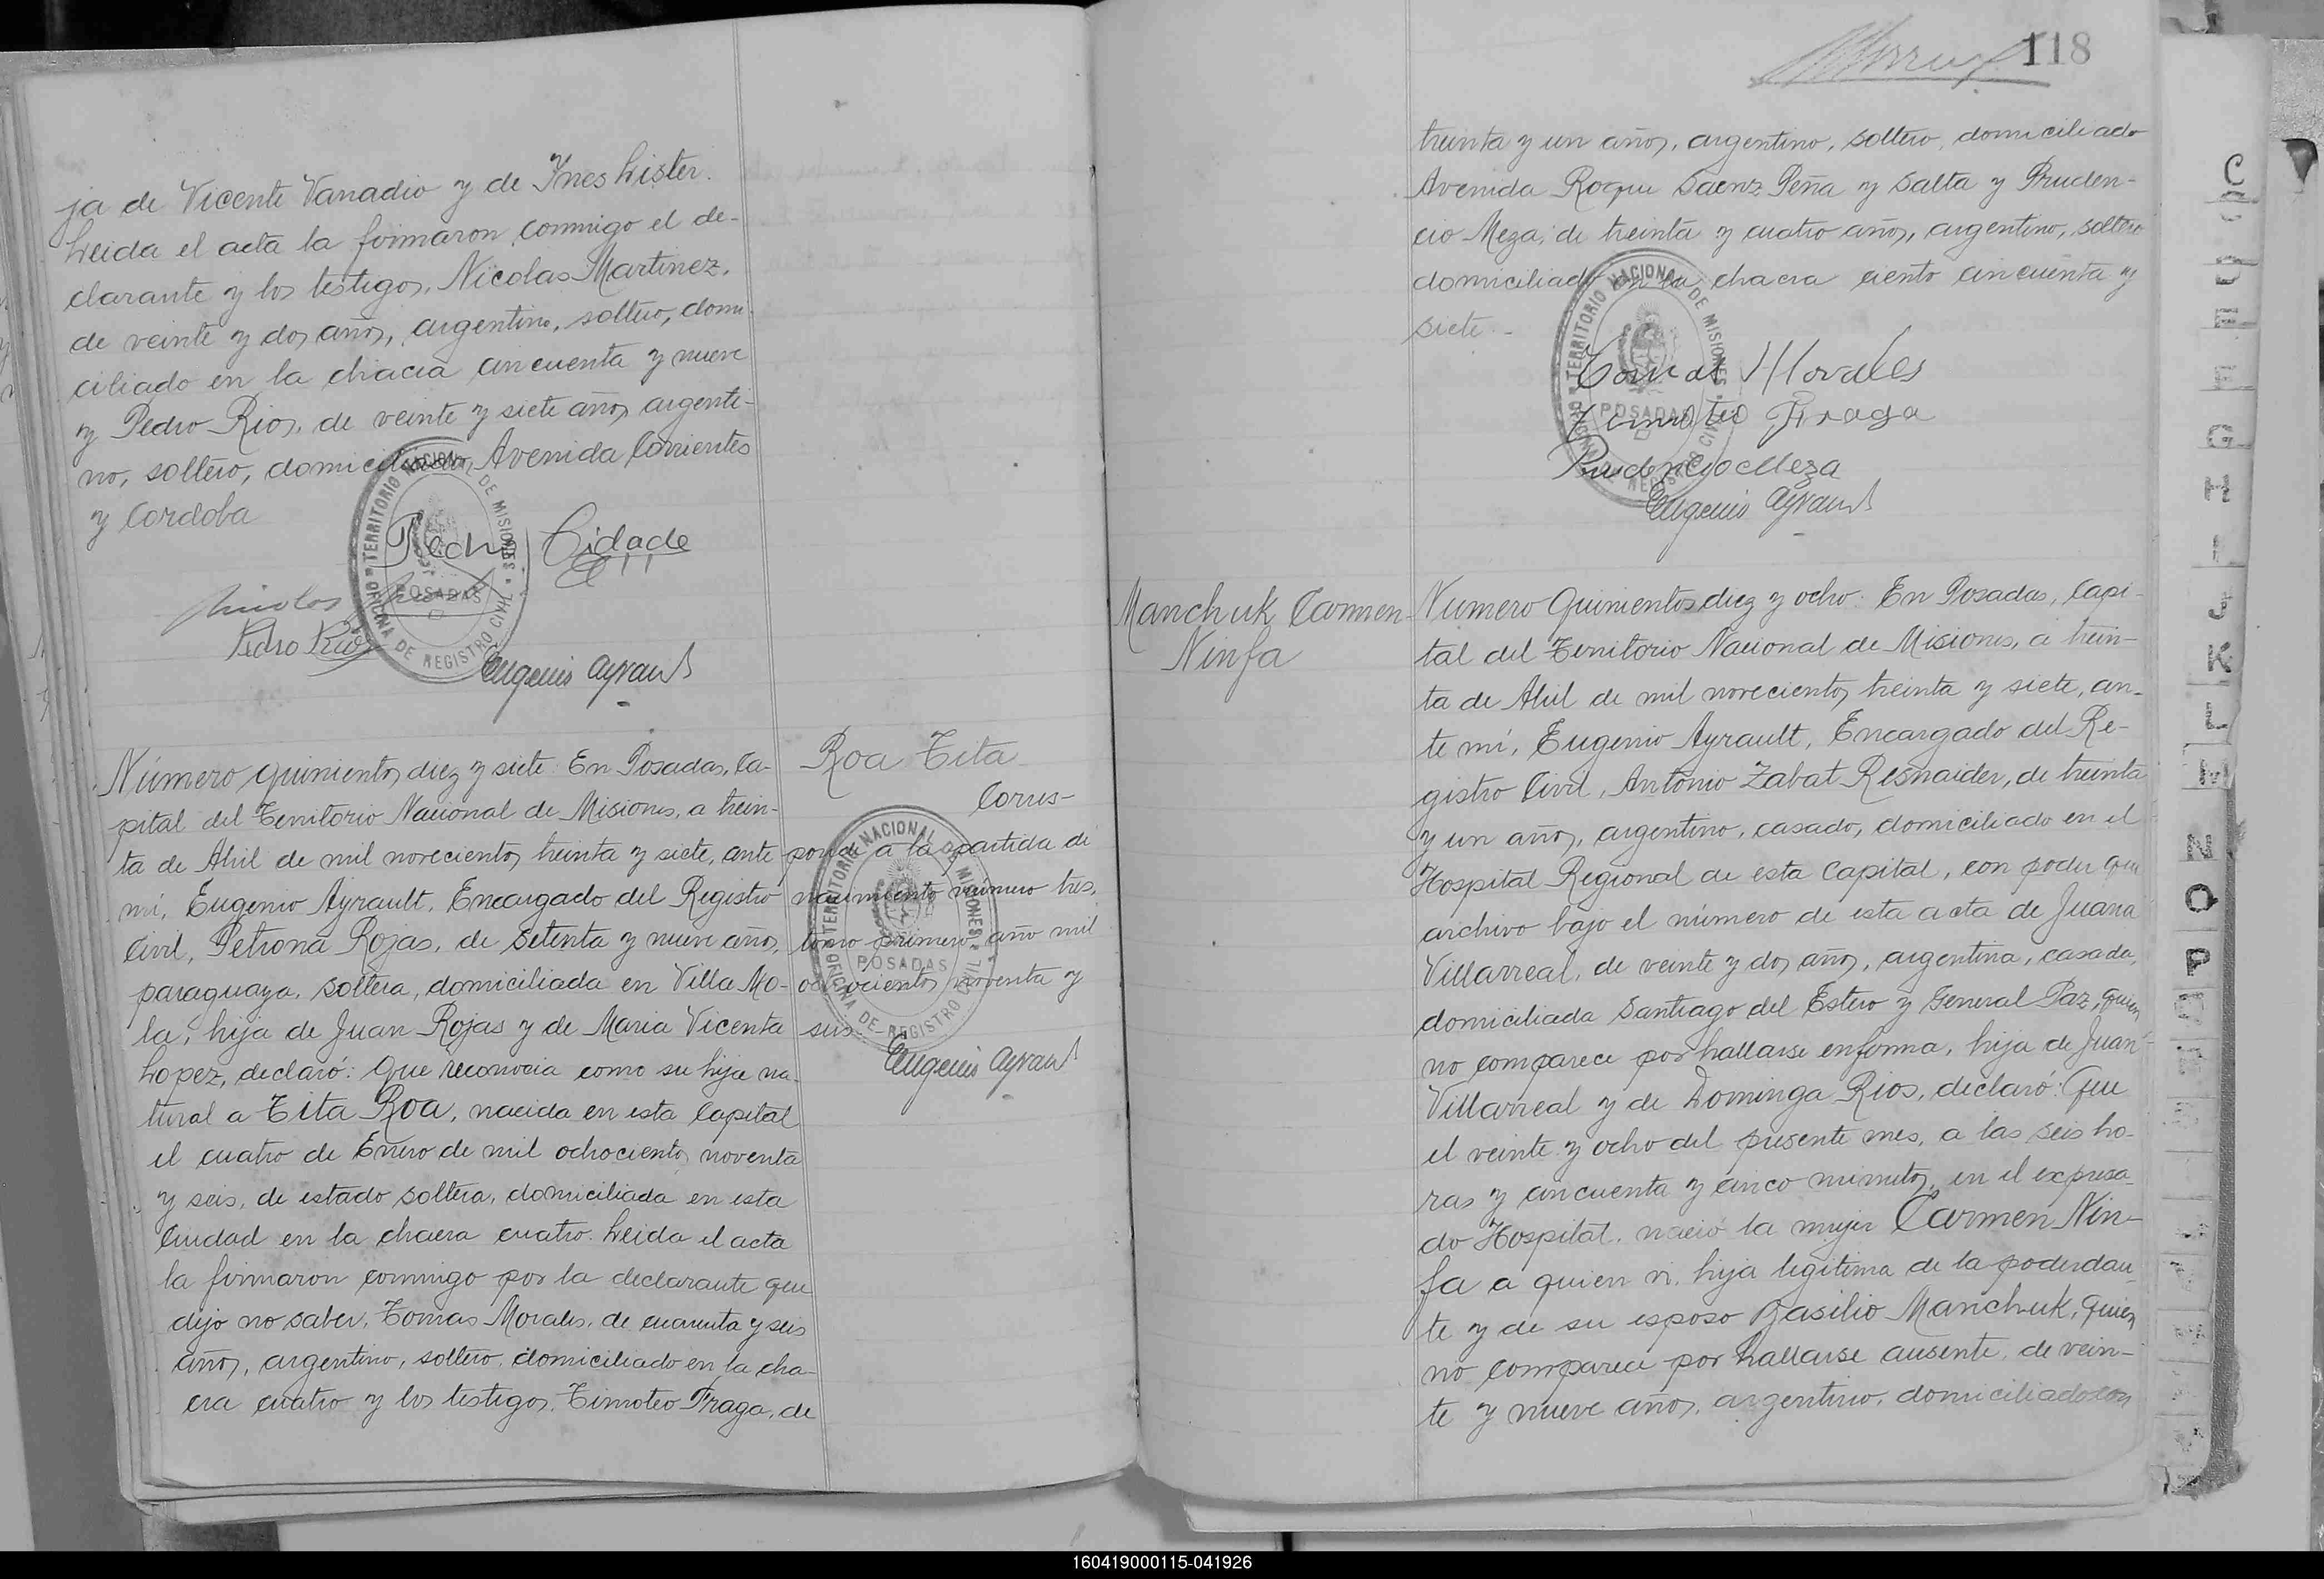 ja de Vicente Vanadio y de Ynes Lister.
Leida el acta la firmaron conmigo el de-
clarante y los testigos, Nicolas Martinez,
de veinte y dos años, argentino, soltero, domi-
ciliado en la chacra cincuenta y nueve
y Pedro Rios, de veinte y siete años, argenti-
no, soltero, domiciliado, Avenida Corrientes
y Cordoba
Pedro Cidade
Nicolas
Pedro Rios
Eugenio Ayrault
TERRITORIO NACIONAL DE MISIONES
POSADAS
OFICINA DE REGISTRO CIVIL
Roa Tita
Número quinientos diez y siete. En Posadas, Ca-
pital del Territorio Nacional de Misiones, a trein-
ta de Abril de mil novecientos treinta y siete, ante
mí, Eugenio Ayrault, Encargado del Registro
Civil, Petrona Rojas, de setenta y nueve años,
paraguaya, soltera, domiciliada en Villa Mo-
la, hija de Juan Rojas y de Maria Vicenta
Lopez, declaró: Que reconocia como su hija na-
tural a Tita Roa, nacida en esta Capital
el cuatro de Enero de mil ochocientos noventa
y seis, de estado soltera, domiciliada en esta
Ciudad en la chacra cuatro. Leida el acta
la firmaron conmigo por la declarante que
dijo no saber, Tomas Morales, de cuarenta y seis
años, argentino, soltero, domiciliado en la cha-
cra cuatro y los testigos, Timoteo Fraga, de
Corres-
ponde a la partida de
nacimiento número tres,
tomo primero, año mil
ochocientos noventa y
seis
Eugenio Ayrault
TERRITORIO NACIONAL DE MISIONES
POSADAS
OFICINA DE REGISTRO CIVIL
118
treinta y un años, argentino, soltero, domiciliado
Avenida Roque Saenz Peña y Salta y Pruden-
cio Meza, de treinta y cuatro años, argentino, soltero
domiciliado en la chacra ciento cincuenta y
siete.-
Tomas Morales
Timoteo Fraga
Prudencio Meza
Eugenio Ayrault
TERRITORIO NACIONAL DE MISIONES
POSADAS
OFICINA DE REGISTRO CIVIL
Manchuk Carmen
Ninfa
Número Quinientos diez y ocho: En Posadas, Capi-
tal del Territorio Nacional de Misiones, a trein-
ta de Abril de mil novecientos treinta y siete, an-
te mí, Eugenio Ayrault, Encargado del Re-
gistro Civil, Antonio Zabat Resnaider, de treinta
y un años, argentino, casado, domiciliado en el
Hospital Regional de esta Capital, con poder que
archivo bajo el número de esta acta de Juana
Villarreal, de veinte y dos años, argentina, casada,
domiciliada Santiago del Estero y General Paz, quien
no comparece por hallarse enferma, hija de Juan
Villarreal y de Dominga Rios, declaró: Que
el veinte y ocho del presente mes, a las seis ho-
ras y cincuenta y cinco minutos, en el expresa-
do Hospital, nació la mujer Carmen Nin-
fa a quien vi, hija legitima de la poderdan-
te y de su esposo Basilio Manchuk, quien
no comparece por hallarse ausente, de vein-
te y nueve años, argentino, domiciliado con
C
D
E
F
G
H
I
J
K
L
M
N
O
P
160419000115-041926